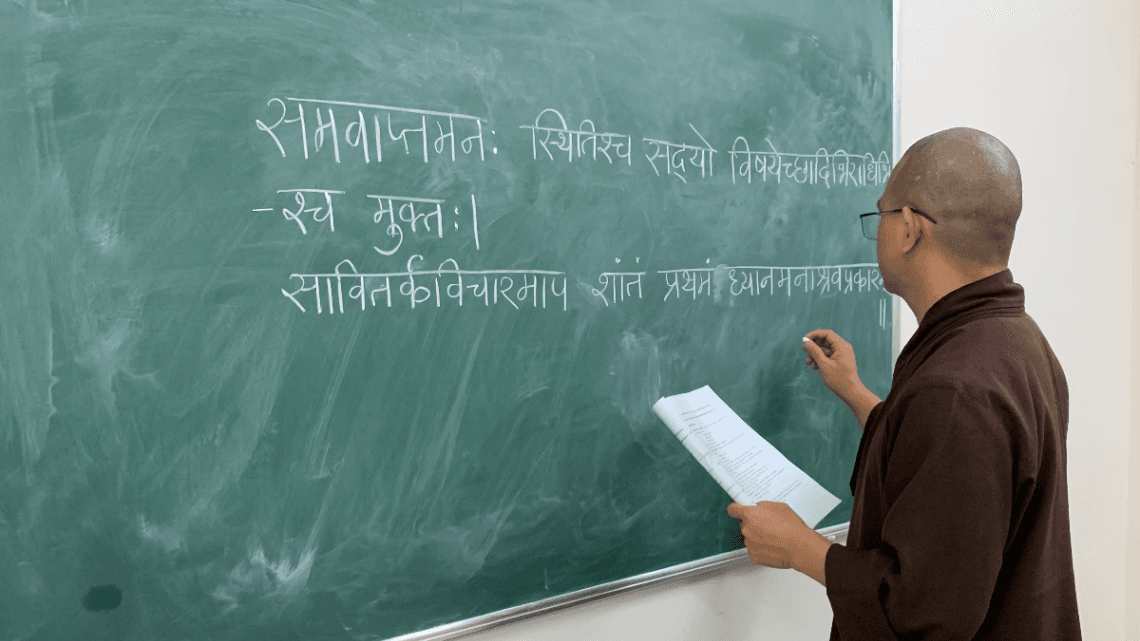 समवाप्तमनः स्थितिश्च सद्यो विषयेच्छादिभिराधिभि
-श्च मुक्तः।
सावितर्कविचारमाप शांतं प्रथमं ध्यानमनाश्रवप्रकारम
॥